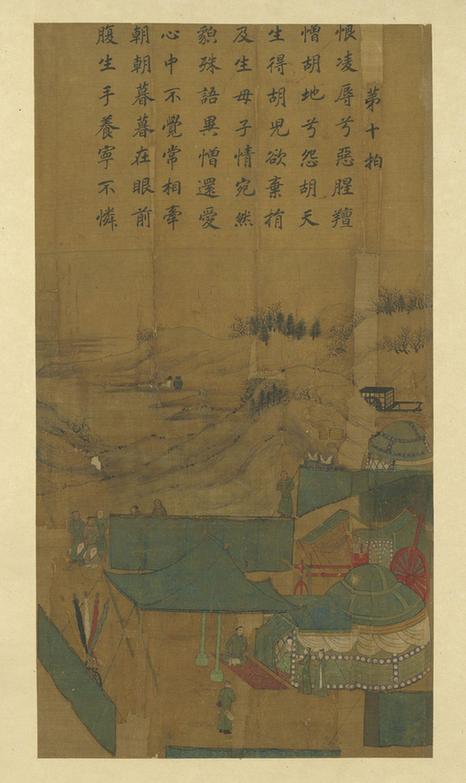 第十拍
恨凌辱兮惡腥羶
憎胡地兮怨胡天
生得胡兒欲棄捐
及生母子情宛然
貌殊語異憎還愛
心中不覺常相牽
朝朝暮暮在眼前
腹生手養寧不憐